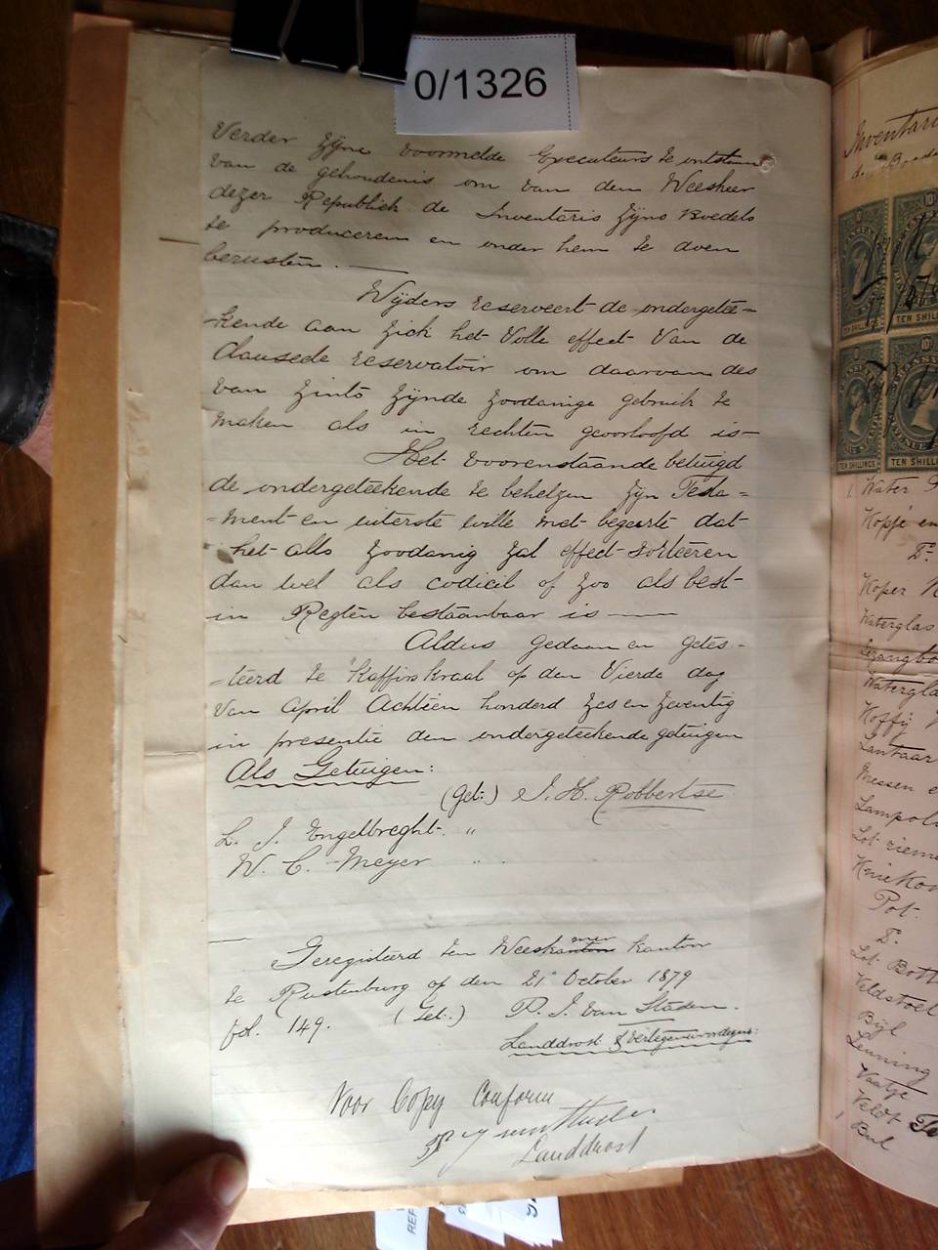 0/1326
Verder zyne voormelde Executeurs te ontslaan
van de gehoudenis om van den Weesheer
dezer Republiek de Inventaris zyns Boedels
te produceren en onder hem te doen
berusten. —
Wijders reserveert de ondergetee=
-kende aan zich het Volle effect Van de
Clausede reservatoir om daarvan des
van zints zynde zoodanige gebruik te
maken als in rechten geoorloofd is—
Het voorenstaande betuigd
de ondergeteekende te behelzen zyn Testa=
-ment en uiterste wille met begeerte dat
het alls zoodanig zal effect sorteeren
dan wel als codicil of zoo als best
in Regten bestaanbaar is —
Aldus gedaan en getes-
-teerd te Kaffirskraal op den Vierde dag
Van April Achtien honderd zes en zeventig
in presentie den ondergeteekende getuigen
Als Getuigen:
(Get:) J. H. Robbertse
L. J. Engelbreght "
W. C. Meyer "
Geregisteerd ten Weeskamer kantoor
te Rustenburg op den 21 October 1879
fol. 149. (Get.) P. J. van Staden.
Landdrost & Vertegenwoordiger
Voor Copy Conform
P J van Staden
Landdrost
Inventaris
TEN SHILLINGS
TEN SHILL
TEN SHILLINGS
TEN SHILL
Water
Kopje en
Do
Koper
Waterglas
Waterglas
Koffij
Lantaar
Messen e
Lampol
Lot rieme
Pot.
Lot Bott
Veldstoel
Bijl
Leuning
Vaatje
Veldt